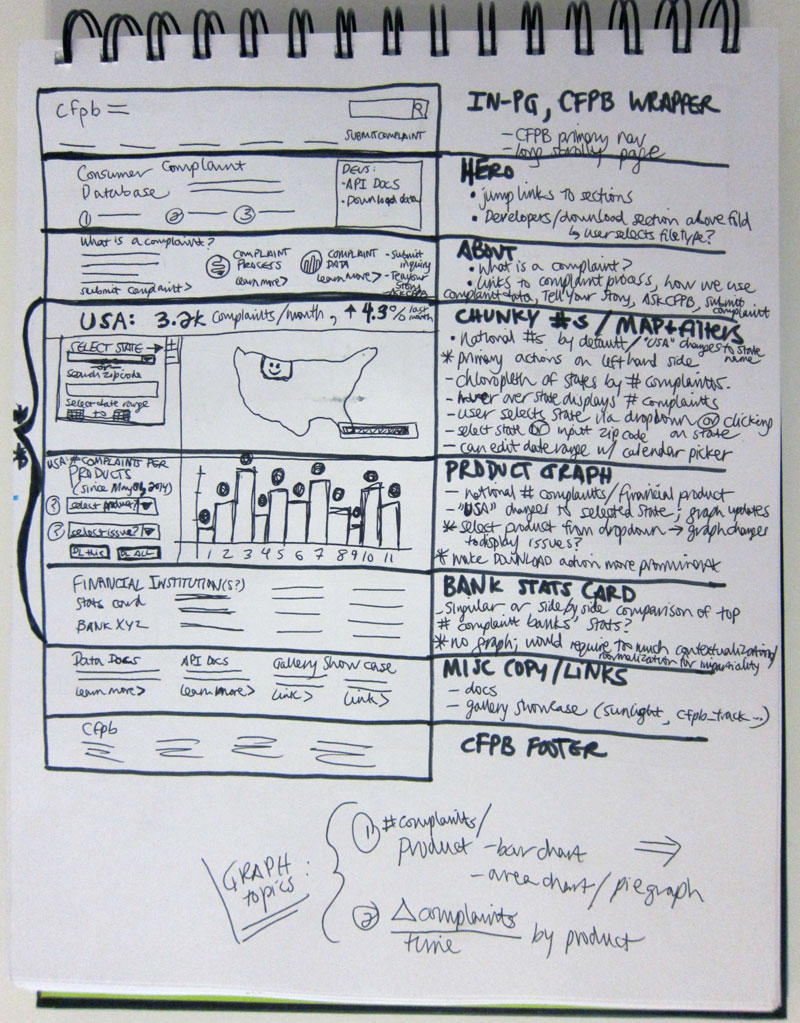 cfpb
SUBMIT COMPLAINT
IN-PG, CFPB WRAPPER
- CFPB primary nav
- long scrolly page
Consumer Complaint
Database
1 2 3
DEVS:
- API DOCS
- Download data
HERO
• jump links to sections
• Developers/download section above fold
↳ user selects filetype?
What is a complaint?
submit complaint>
COMPLAINT
PROCESS
learn more>
COMPLAINT
DATA
learn more>
- Submit
inquiry
- Tell your
story
- ASKCFPB
ABOUT
• What is a complaint?
• Links to complaint process, how we use
complaint data, Tell Your Story, ASKCFPB, submit
complaint
USA: 3.2k complaints/month, ↑ 4.3% last
month
SELECT STATE →
or
search zip code
select date range
to
CHUNKY #S / MAP + filters
• National #s by default / "USA" changes to state
name
* primary actions on left hand side
- chloropleth of states by # complaints.
- hover over state displays # complaints
- user selects state via dropdown or clicking
on state
- select state or input zip code
- can edit date range w/ calendar picker
USA: # COMPLAINTS PER
PRODUCTS
(since May 01, 2014)
? select product?
? select issue?
DL this DL ALL
1 2 3 4 5 6 7 8 9 10 11
PRODUCT GRAPH
- national # complaints/financial product
- "USA" changes to selected state; graph updates
* select product from dropdown → graph changes
to display issues?
* make DOWNLOAD action more prominent
FINANCIAL INSTITUTION(S?)
Stats card
BANK XYZ
BANK STATS CARD
singular or side by side comparison of top
# complaint banks' stats?
* no graph; would require too much contextualization/
normalization for impartiality
Data Docs
learn more>
API Docs
learn more>
Gallery Showcase
link>
link>
MISC COPY/LINKS
- docs
- gallery showcase (sunlight, cfpb_track...)
cfpb
CFPB FOOTER
GRAPH
topics:
1 # complaints/
product - bar chart ⇒
- area chart/pie graph
2 △ complaints
time
by product